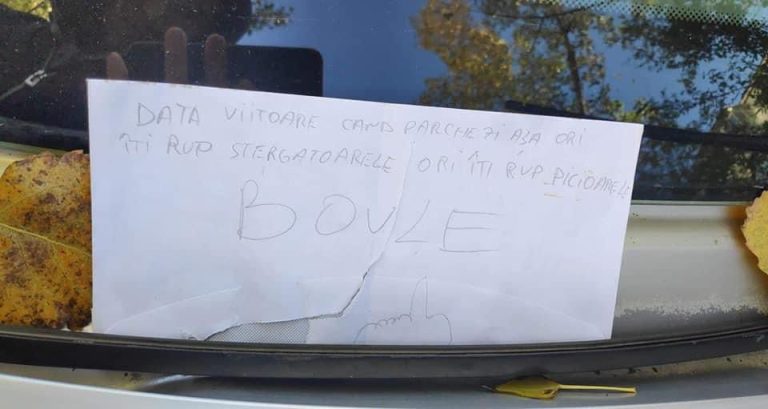 DATA VIITOARE CAND PARCHEZI AȘA ORI
ÎȚI RUP STERGATOARELE ORI ÎȚI RUP PICIOARELE
BOULE